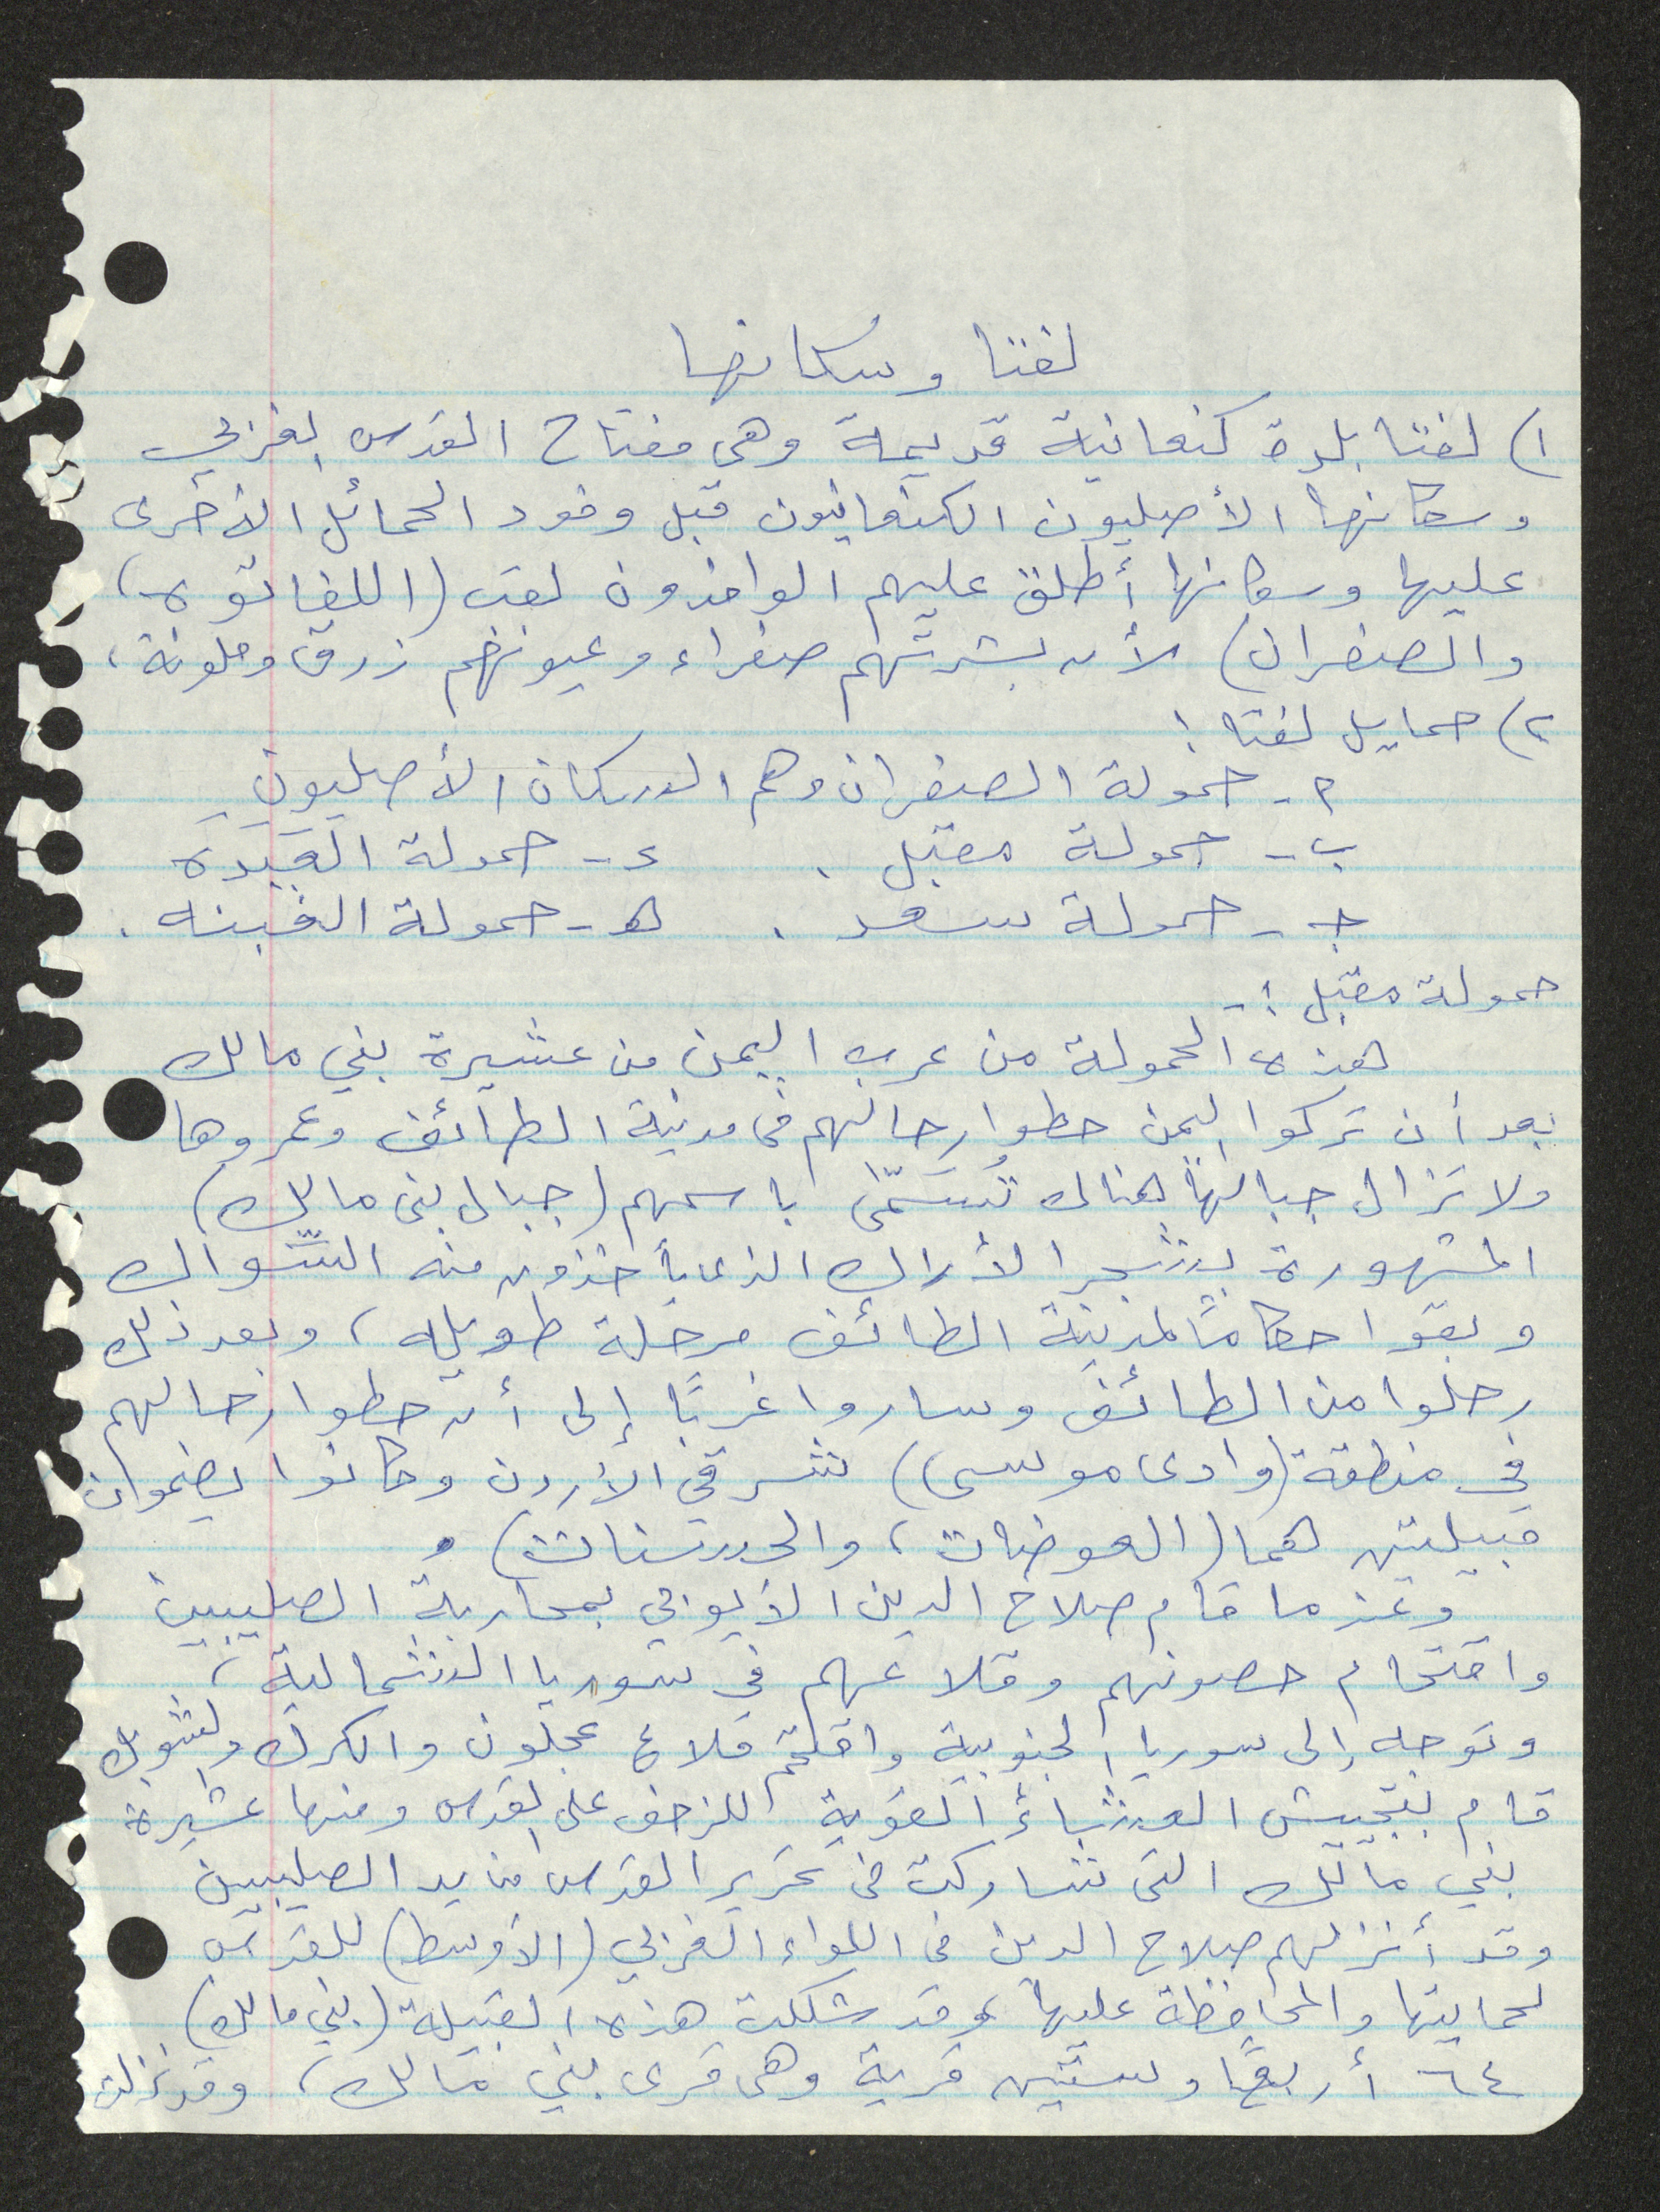 لفتا وسكانها
١) لفتا بلدة كنعانية قديمة وهي مفتاح القدس الغربي
وسكانها الأصليون الكنعانيون قبل وفود الحمائل الأخرى
عليها وسكانها أطلق عليهم الوافدون لقب (اللفاتوه،
والصفران) لأن بشرتهم صفراء وعيونهم زرق وملونة،
٢) حمايل لفتا:
أ- حمولة الصفران وهم السكان الأصليون
ب- حمولة مقبل . د- حمولة العبيده
جـ- حمولة سعد . هـ- حمولة الغبنه .
حمولة مقبل :-
هذه الحمولة من عرب اليمن من عشيرة بني مالك
بعد أن تركوا اليمن حطوا رحالهم في مدينة الطائف وعمروها
ولا تزال جبالها هناك تُسَمّى باسمهم (جبال بني مالك)
المشهورة بشجر الأراك الذي يأخذون منه السّواك
وبقوا حكامًا لمدينة الطائف مرحلة طويلة، وبعد ذلك
رحلوا من الطائف وساروا غربًا إلى أن حطوا رحالهم
في منطقة (وادي موسى) شرقي الأردن وكانوا يضمون
قبيلتين هما (العوضات، والحسنات) .
وعندما قام صلاح الدين الأيوبي بمحاربة الصليبيين
واقتحام حصونهم وقلاعهم في سوريا الشمالية،
وتوجه إلى سوريا الجنوبية واقتحم قلاع عجلون والكرك والشوبك
قام بتجييش العشائر القوية للزحف على القدس ومنها عشيرة
بني مالك التي شاركت في تحرير القدس من يد الصليبيين
وقد أنزلهم صلاح الدين في اللواء الغربي (الأوسط) للقدس
لحمايتها والمحافظة عليها وقد شكلت هذه القبيلة (بني مالك)
٦٤ أربعًا وستين قرية وهي قرى بني مالك، وقد نزلت